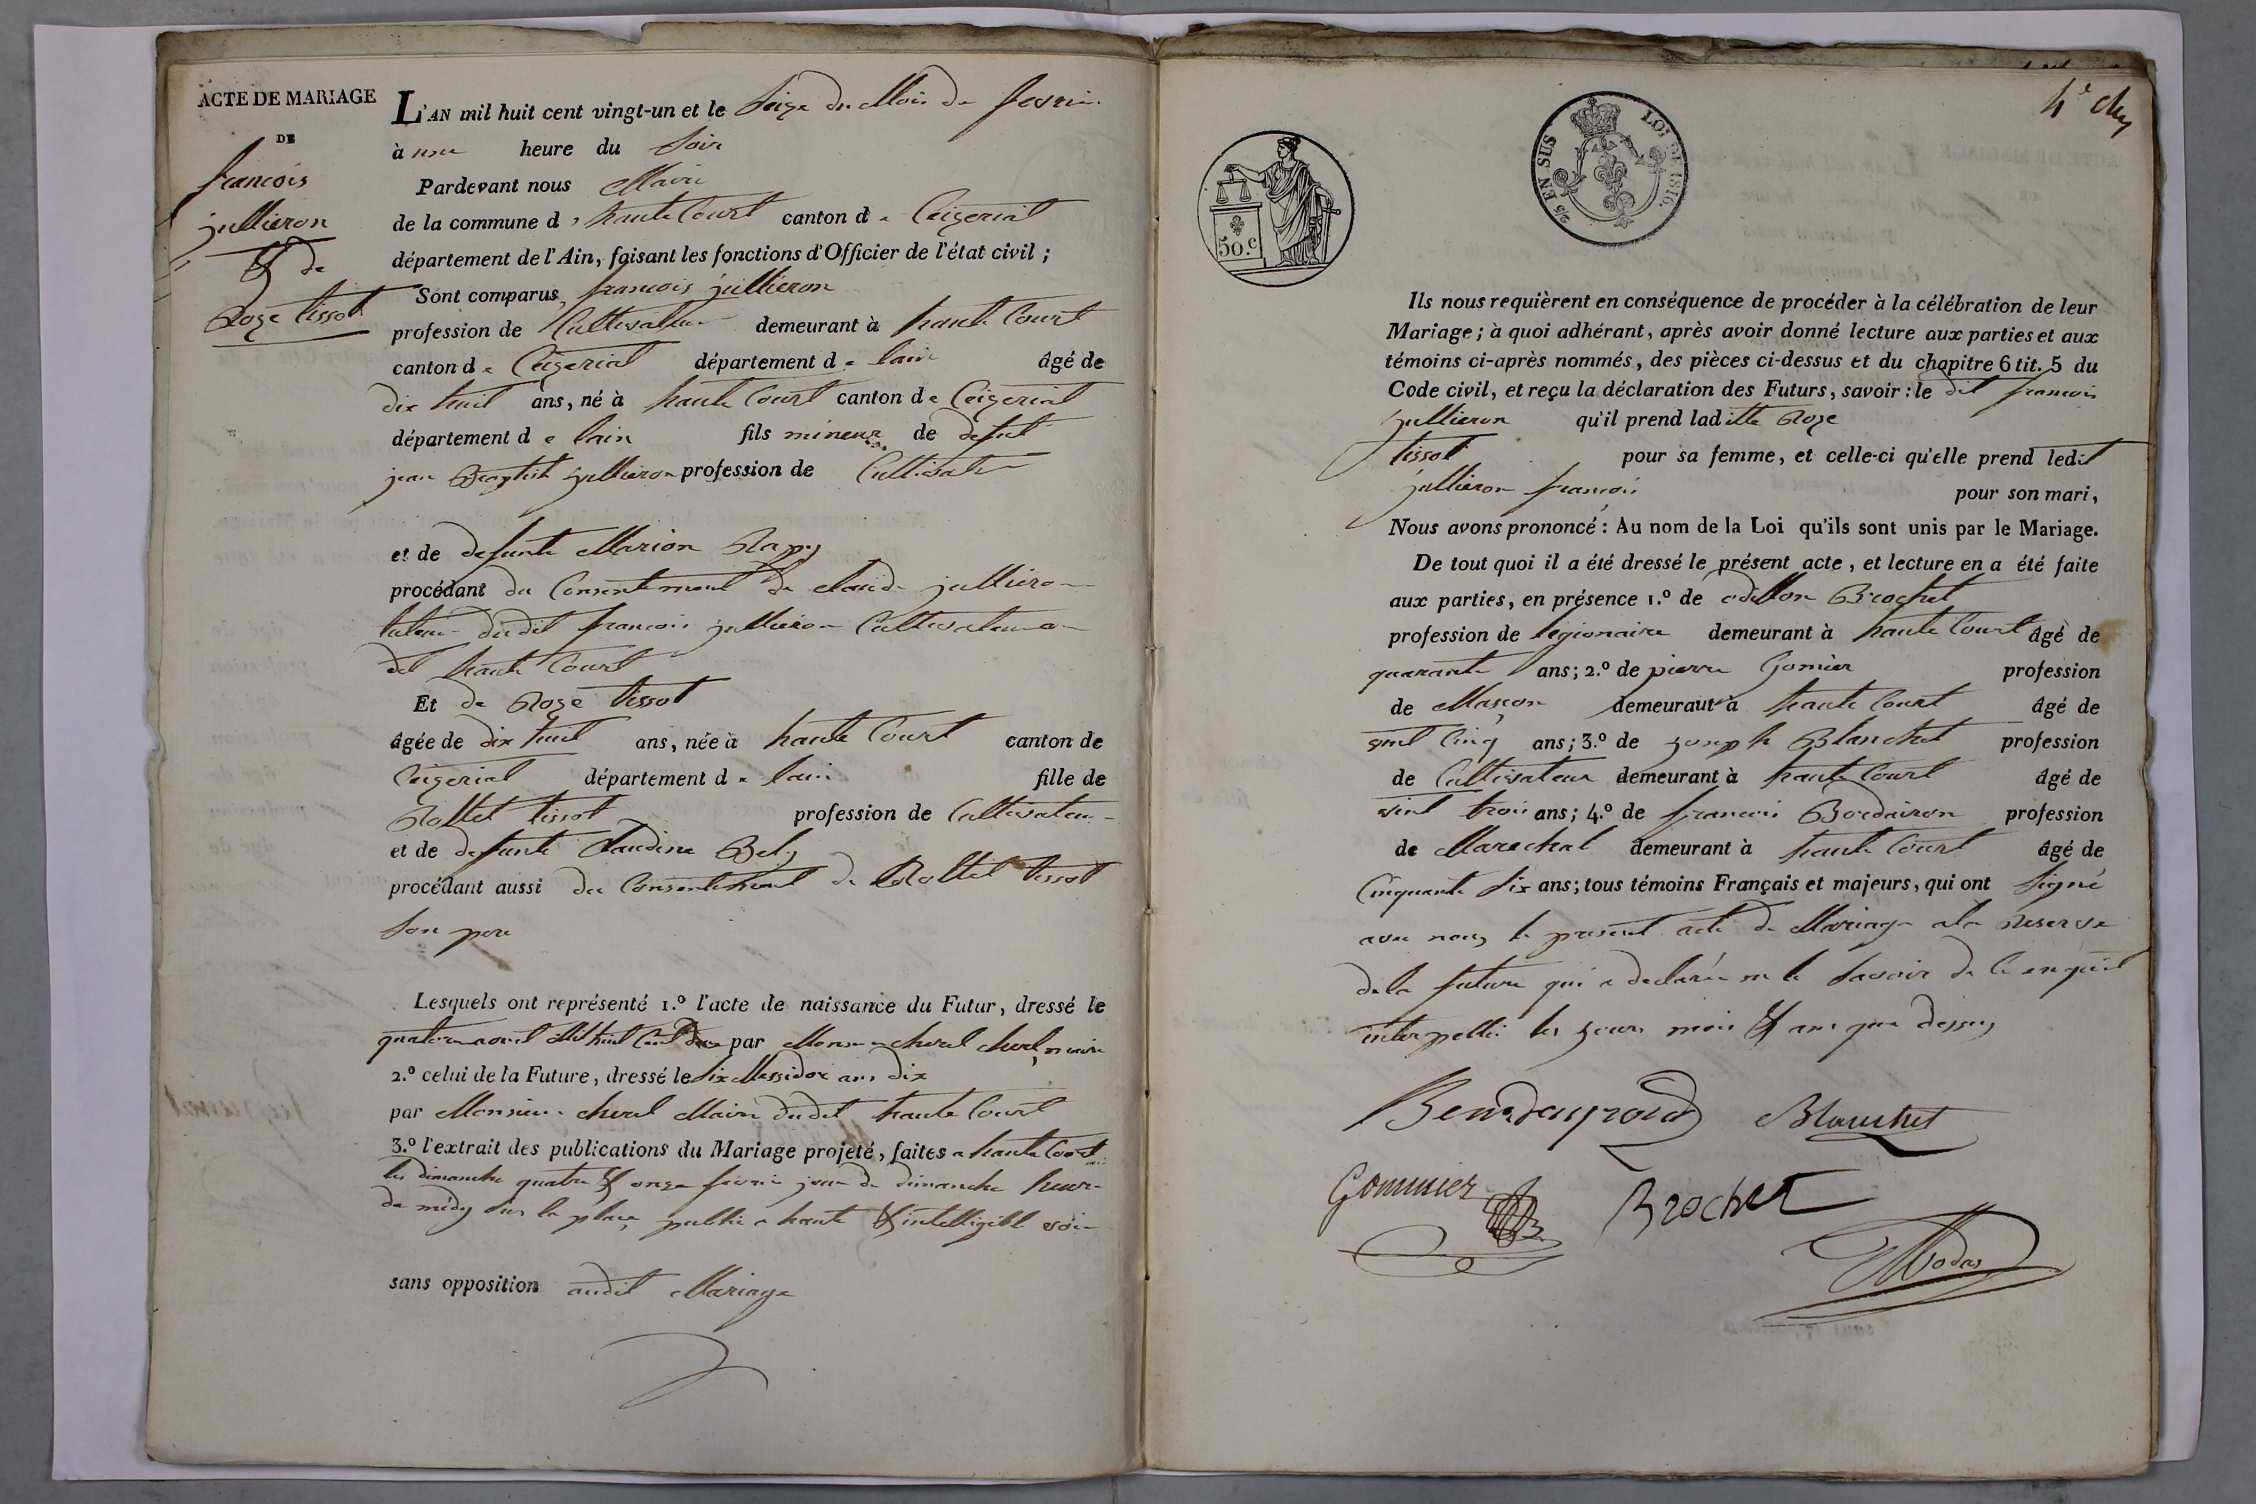 ACTE DE MARIAGE
DE
francois
jullieron
& de
Roze tissot
L'AN mil huit cent vingt-un et le Seize du Mois de fevrie
à une heure du Soir
Pardevant nous Maire
de la commune d haute Court canton de Ceizeriat
département de l'Ain, faisant les fonctions d'Officier de l'état civil ;
Sont comparus, francois jullieron
profession de Cultivateur demeurant à haute Court
canton de Ceizeriat département de lain âgé de
dix huit ans, né à haute Court canton de Ceizeriat
département de lain fils mineur de defut
jean Baptist jullieron profession de Cultivateur
et de defunte Marion Rapy
procédant du Consentement de claude jullieron
tuteur dudit francois jullieron Cultivateur
dit haute Court
Et de Roze tissot
âgée de dix huit ans, née à haute Court canton de
Ceizeriat département de lain fille de
Rollet tissot profession de Cultivateur
et de defunte Claudine Bely
procédant aussi du Consentement de Rollet tissot
Son pere
Lesquels ont représenté 1.º l'acte de naissance du Futur, dressé le
avril Mil huit Cent par cheval maire
2.º celui de la Future, dressé le Six Messidor ans dix
par Monsieur cheval Maire dudit haute Court
3.º l'extrait des publications du Mariage projeté, faites a haute Court
les dimanche quatre & onze fevrie jour de dimanche heure
de médy sur la place public a haute & intelligible voie
sans opposition audit Mariage
4e
50.c
2/5 EN SUS
LOI DE 1816.
Ils nous requièrent en conséquence de procéder à la célébration de leur
Mariage ; à quoi adhérant, après avoir donné lecture aux parties et aux
témoins ci-après nommés, des pièces ci-dessus et du chapitre 6 tit. 5 du
Code civil, et reçu la déclaration des Futurs, savoir : le dit francois
jullieron qu'il prend laditte Roze
tissot pour sa femme, et celle-ci qu'elle prend ledit
jullieron francois pour son mari,
Nous avons prononcé : Au nom de la Loi qu'ils sont unis par le Mariage.
De tout quoi il a été dressé le présent acte, et lecture en a été faite
aux parties, en présence 1.º de odillon Brochet
profession de légionaire demeurant à haute Court âgé de
quarante ans ; 2.º de pierre Gomier profession
de Maçon demeurant à haute Court âgé de
vint Cinq ans ; 3.º de Joseph Blanchet profession
de Cultivateur demeurant à haute Court âgé de
vint trois ans ; 4.º de francois Bordairon profession
de Marechal demeurant à haute Court âgé de
Cinquante Six ans ; tous témoins Français et majeurs, qui ont Signé
avec nous le present acte de Mariage a la reserve
de la future qui a declarée ne le Savoir de ce enquit
interpellée les jours mois & ans que dessus
Blanchet
Gommier
Brochet